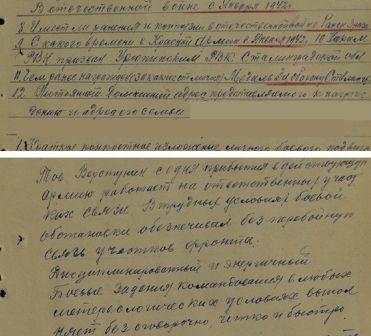 В отечественной войне с Января 1942г.
8. Имеет ли ранения и контузии в отечественной войне Ранен
9. С какого времени в Красной Армии с Января 1942г. 10. Каким
РВК призван Урюпинским РВК Сталинградской обл
11. Чем ранее награжден (за какие отличия) Медаль За оборону Сталингр.
12. Постоянный домашний адрес представляемого к награж-
дению и адрес его семьи
1. Краткое конкретное изложение личного боевого подвига
Тов Верстунин со дня прибытия в действующую
армию работает на ответственных участ
ках связи. В трудных условиях боевой
обстановки обеспечивал бесперебойную
связь участков фронта.
Дисциплинированный и энергичный
Боевые Задания Командования в любых
метерологических условиях выпол
няет безоговорочно, четко и быстро